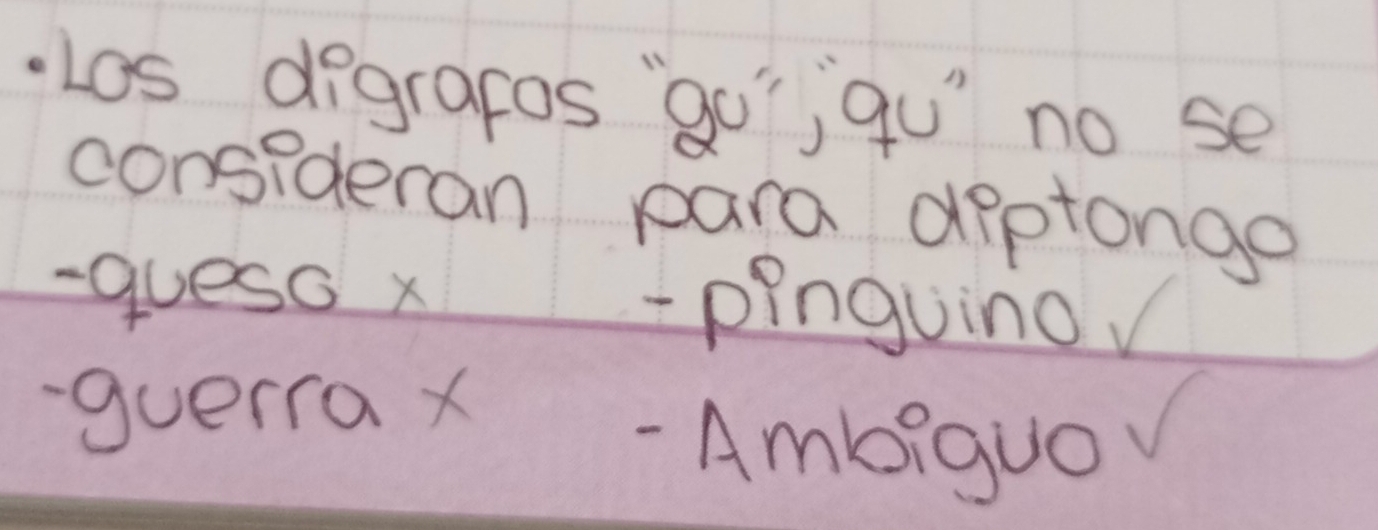 •Los digrafos "gu", "qu" no se
consideran para diptongo
-queso x -pinguino ✓
-guerra x -Ambiguo ✓